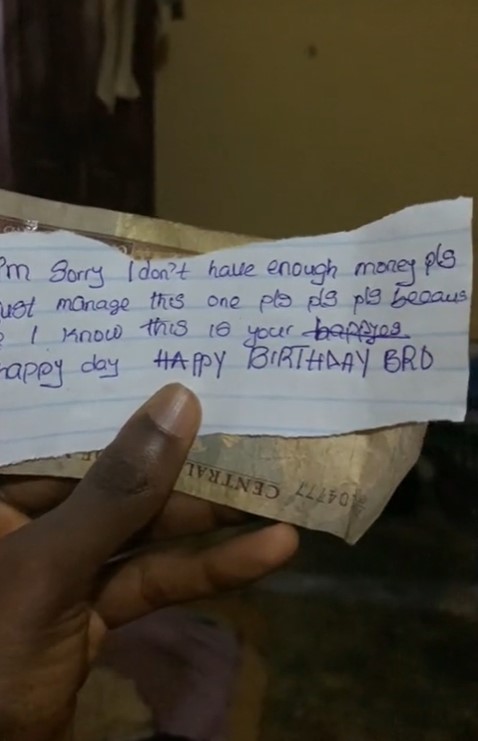 'm Sorry I don't have enough money pls
ust manage this one pls pls pls becaus
e I know this is your happyes
happy day HAPPY BIRTHDAY BRO
CENTRAL
104777